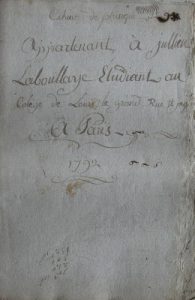 Cahier de phisique
Appartenant à Jullien
Laboullaye Etudiant au
Colege de Louis le grand. Rue St jaq
A Paris
1792